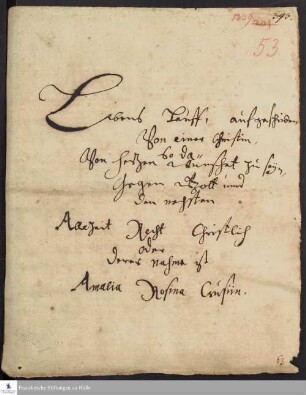 53
Lebens Lauff, aufgeschrieben
Von einer Christin,
so da
Von Hertzen wünschet zu seyn,
Gegen Gott und
den nechsten
Allezeit Recht Christlich
oder
derer nahme ist
Amalia Rosina Crusiin.
Franckesche Stiftungen zu Halle